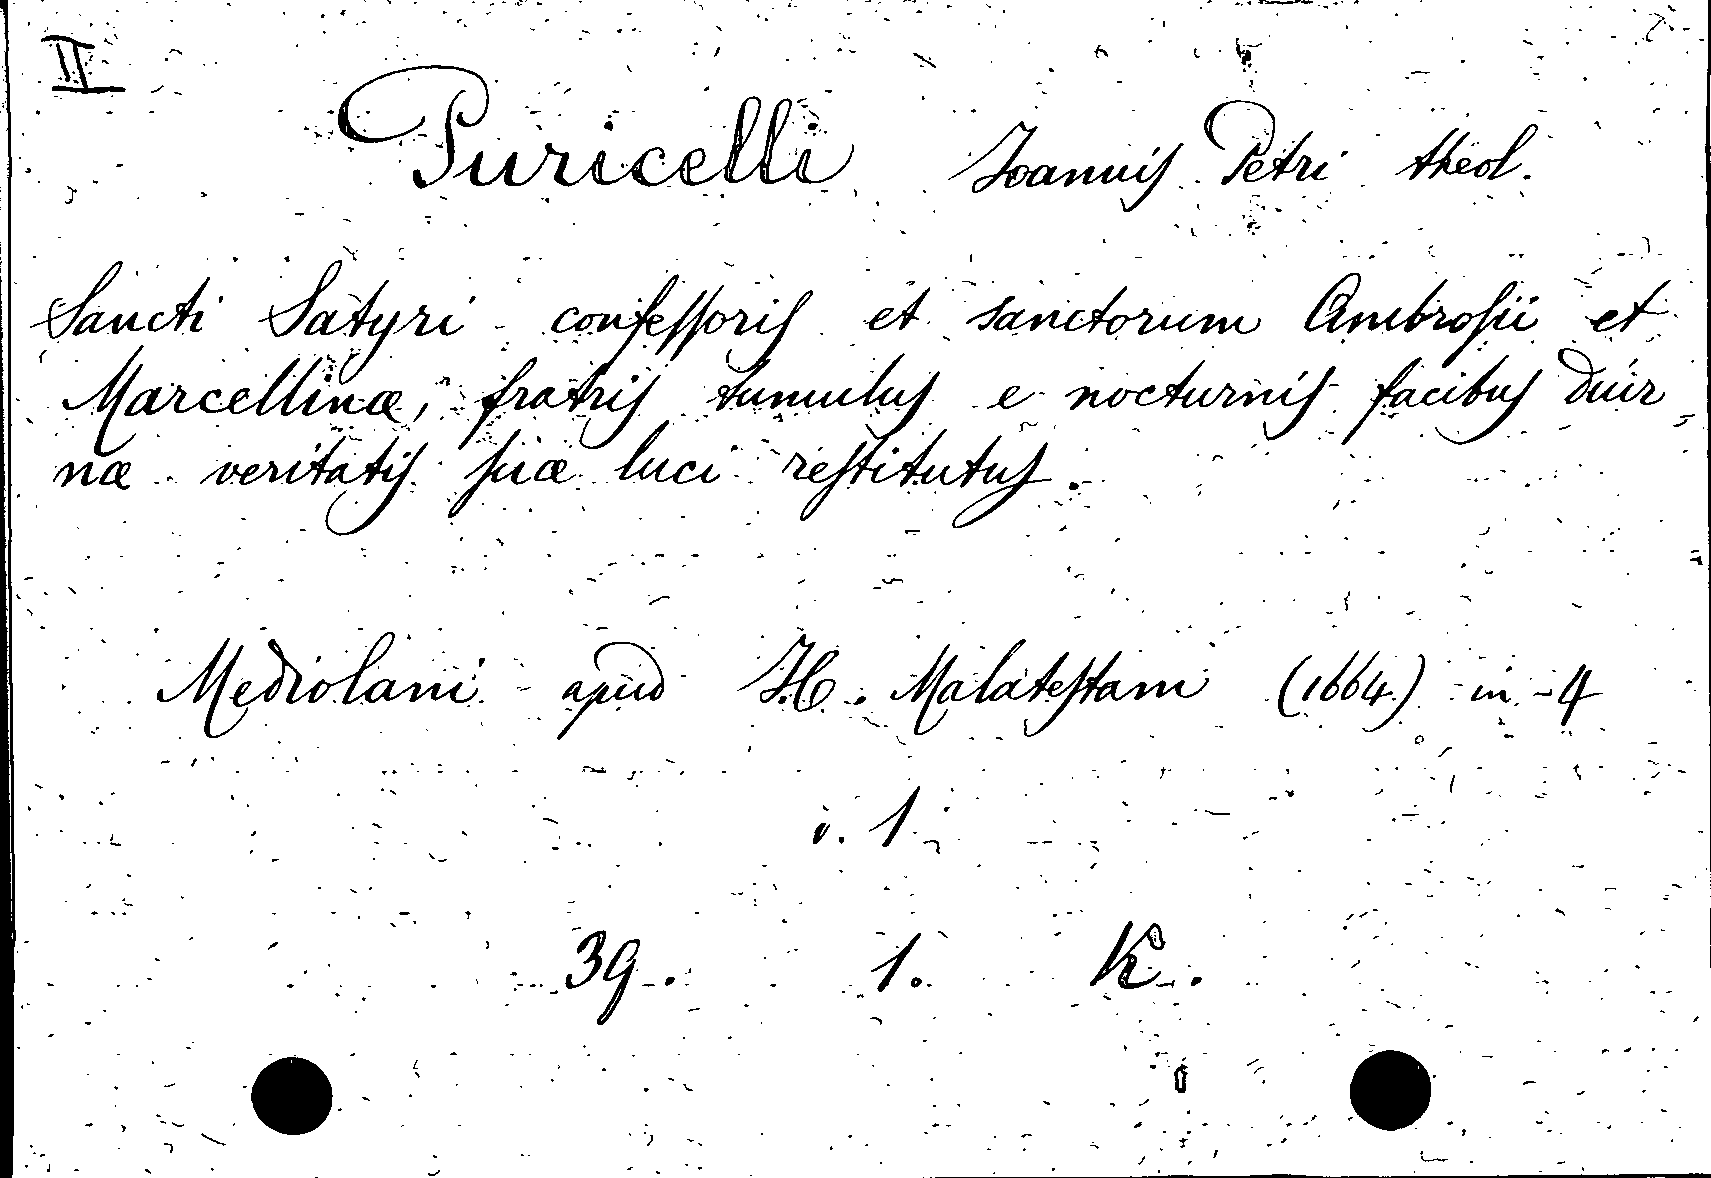 II
Puricelli Joannis Petri theol.
Sancti Satyri confessoris et sanctorum Ambrosii et
Marcellinæ, fratris tumulus e nocturnis facibus diur
næ veritatis suæ luci restitutus.
Mediolani apud J.H. Malatestam (1664) in-4
v. 1
39. 1. K.